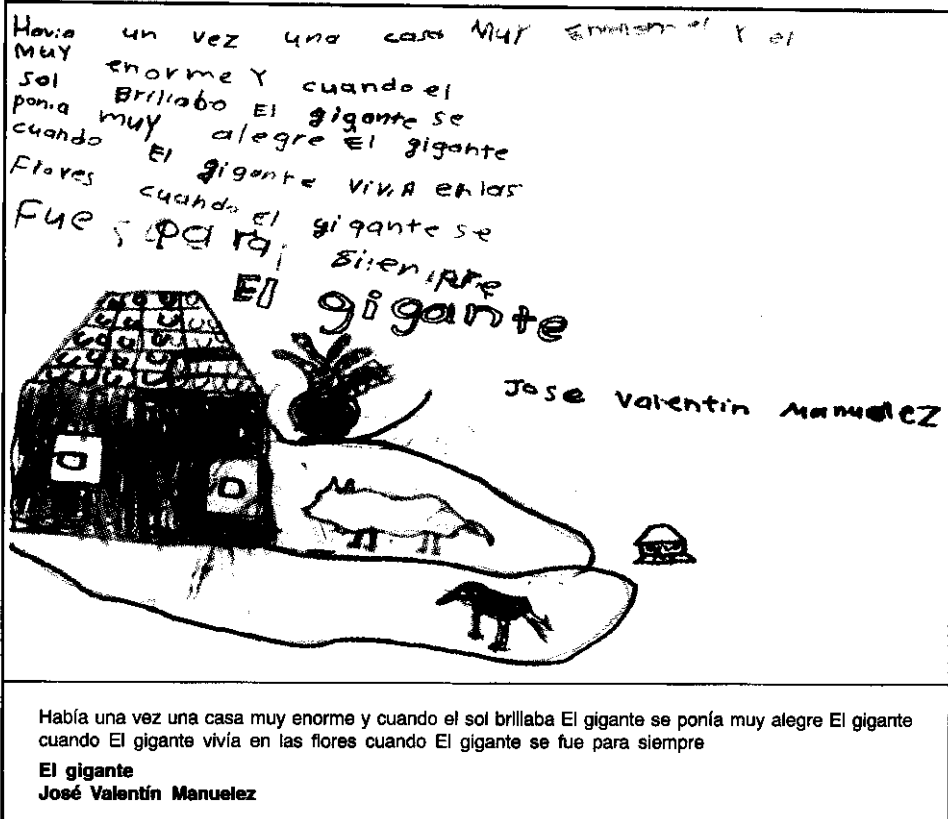 Havia un vez una casa Muy Y el
MUY enorme Y cuando el
sol Brillabo El gigante se
ponia muy alegre El gigante
cuando El gigante viviA en las
Flores cuando El gigante se
Fue para siempre
El gigante
Jose Valentin Manuelez
Había una vez una casa muy enorme y cuando el sol brillaba El gigante se ponía muy alegre El gigante
cuando El gigante vivía en las flores cuando El gigante se fue para siempre
El gigante
José Valentín Manuelez